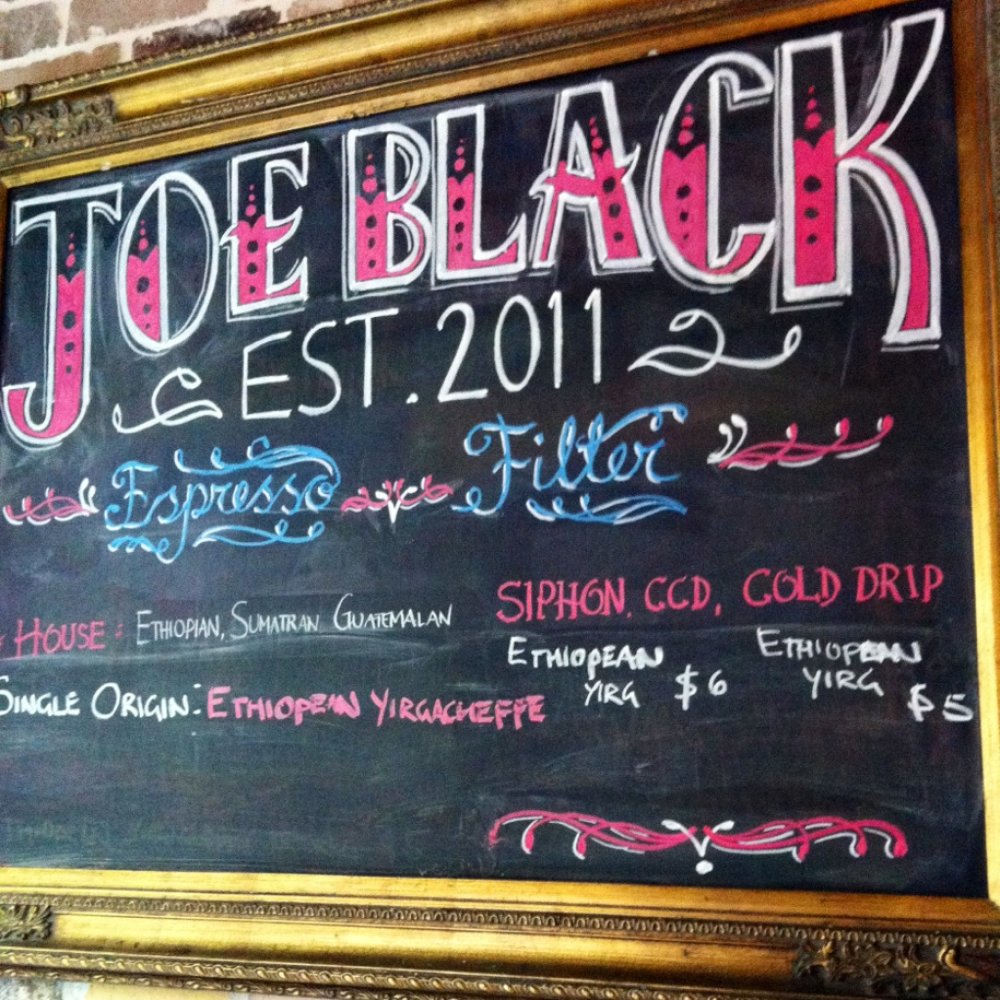 JOE BLACK
EST. 2011
Espresso Filter
HOUSE: ETHIOPIAN, SUMATRAN GUATEMALAN
SINGLE ORIGIN: ETHIOPEAN YIRGACHEFFE
SIPHON, CCD, COLD DRIP
ETHIOPEAN YIRG $6
ETHIOPEAN YIRG $5